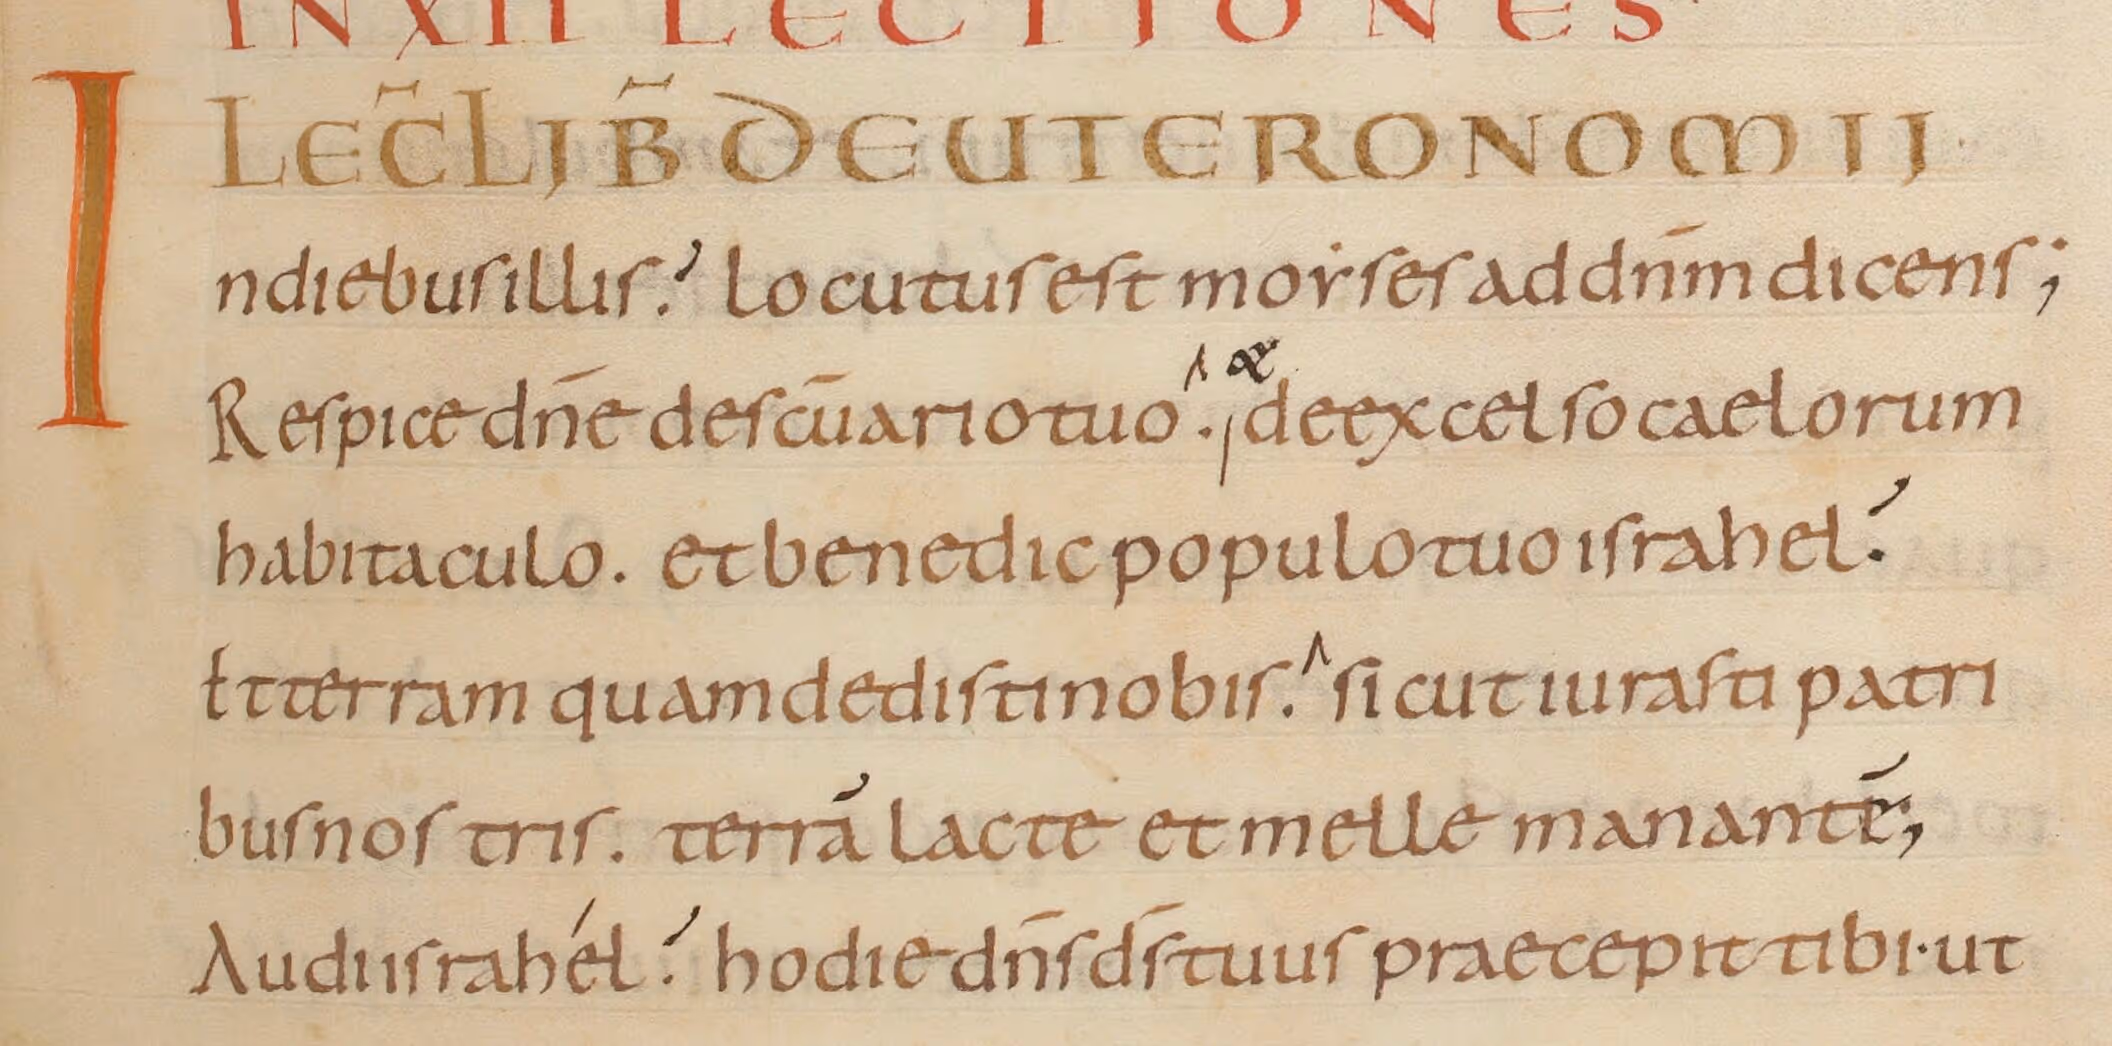 IN XII LECTIONES
LEC̄ LIB̄ DEUTERONOMII·
In diebus illis. locutus est moẏses ad dn̄m dicens;
Respice dn̄e de scūario tuo. & de excelso caelorum
habitaculo. et benedic populo tuo israhel.
Et terram quam dedisti nobis. sicut iurasti patri
bus nostris. terrā lacte et melle manantē;
Audi israhél. hodie dn̄s ds̄ tuus praecepit tibi· ut